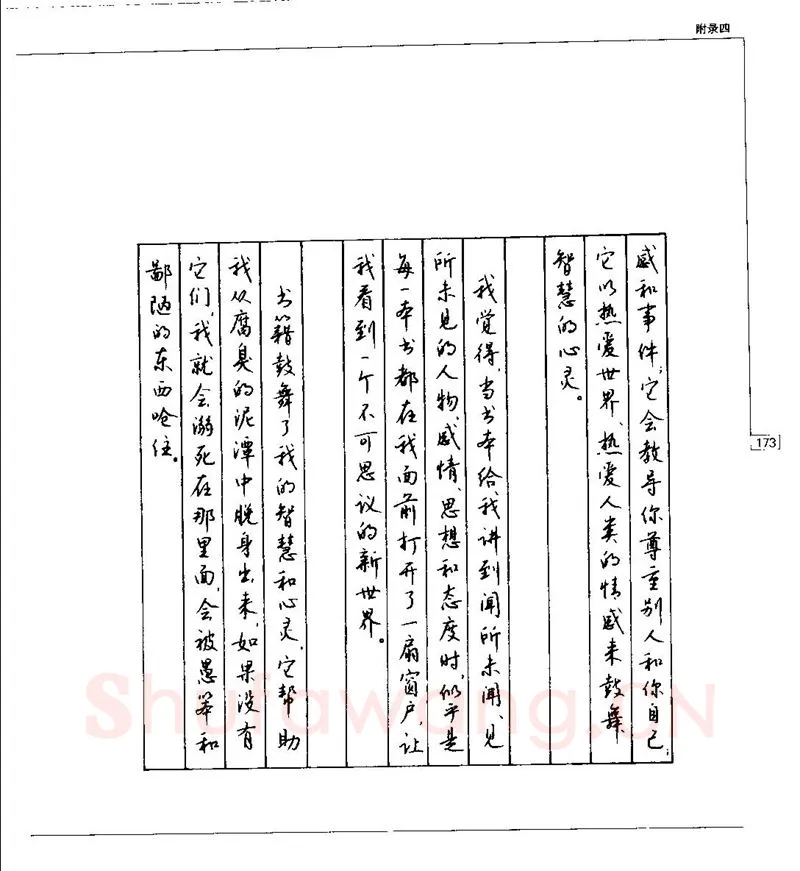 附录四
感和事件,它会教导你尊重别人和你自己,
它以热爱世界、热爱人类的情感来鼓舞
智慧的心灵。
我觉得,当书本给我讲到闻所未闻、见
所未见的人物、感情、思想和态度时,似乎是
每一本书都在我面前打开了一扇窗户,让
我看到一个不可思议的新世界。
书籍鼓舞了我的智慧和心灵,它帮助
我从腐臭的泥潭中脱身出来,如果没有
它们,我就会溺死在那里面,会被愚笨和
鄙陋的东西呛住。
173
Shufawang.CN